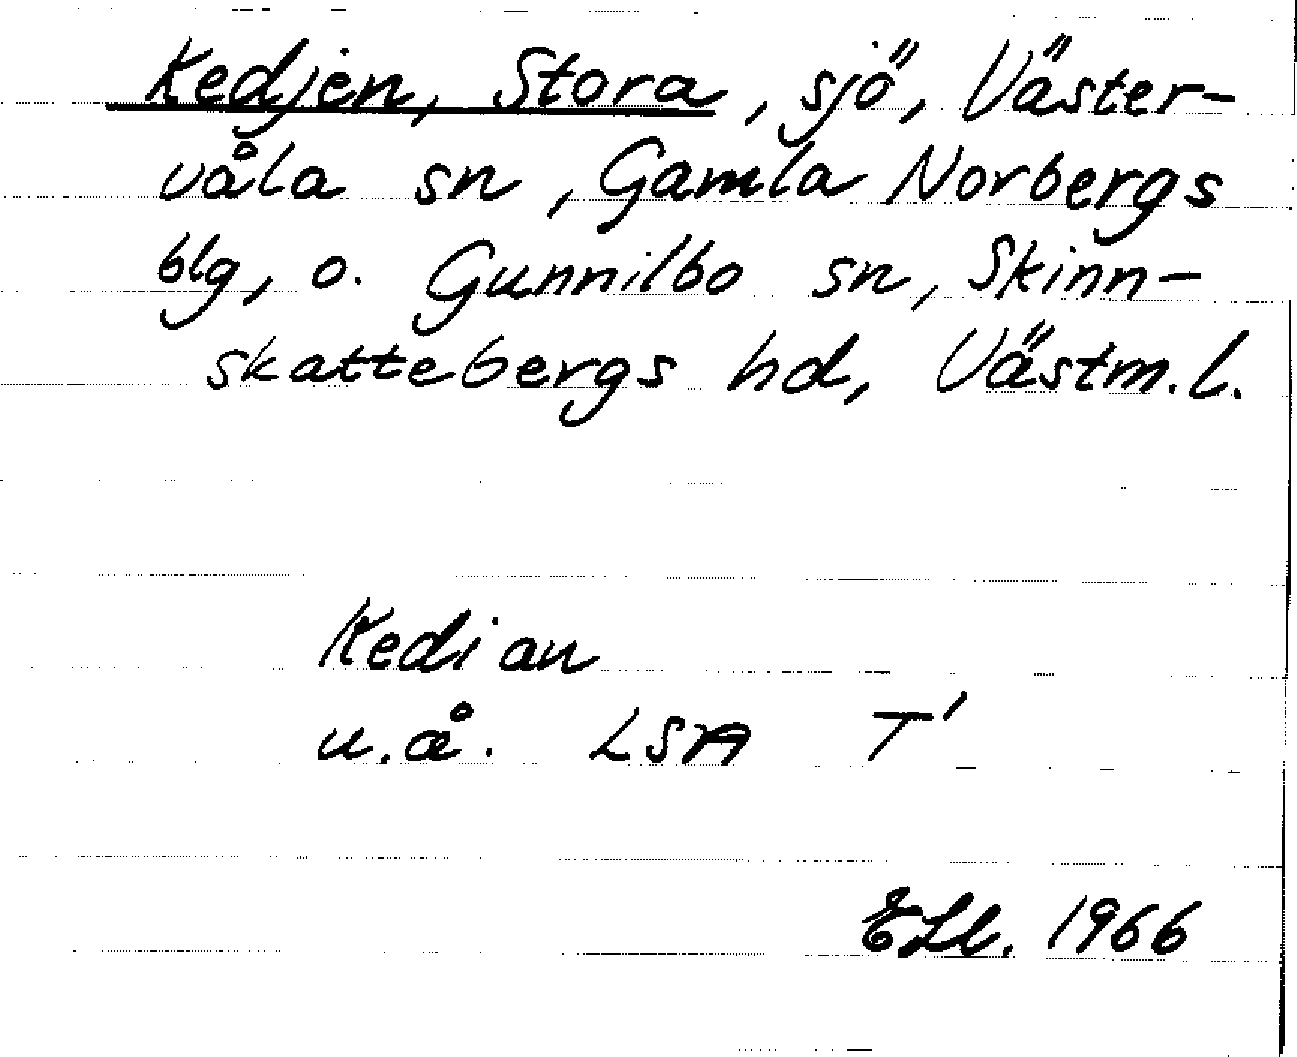 Kedjen, Stora, sjö, Väster-
våla sn, Gamla Norbergs
blg, o. Gunnilbo sn, Skinn-
skattebergs hd, Västm.l.
Kedian
u.å. LSA T'
1966